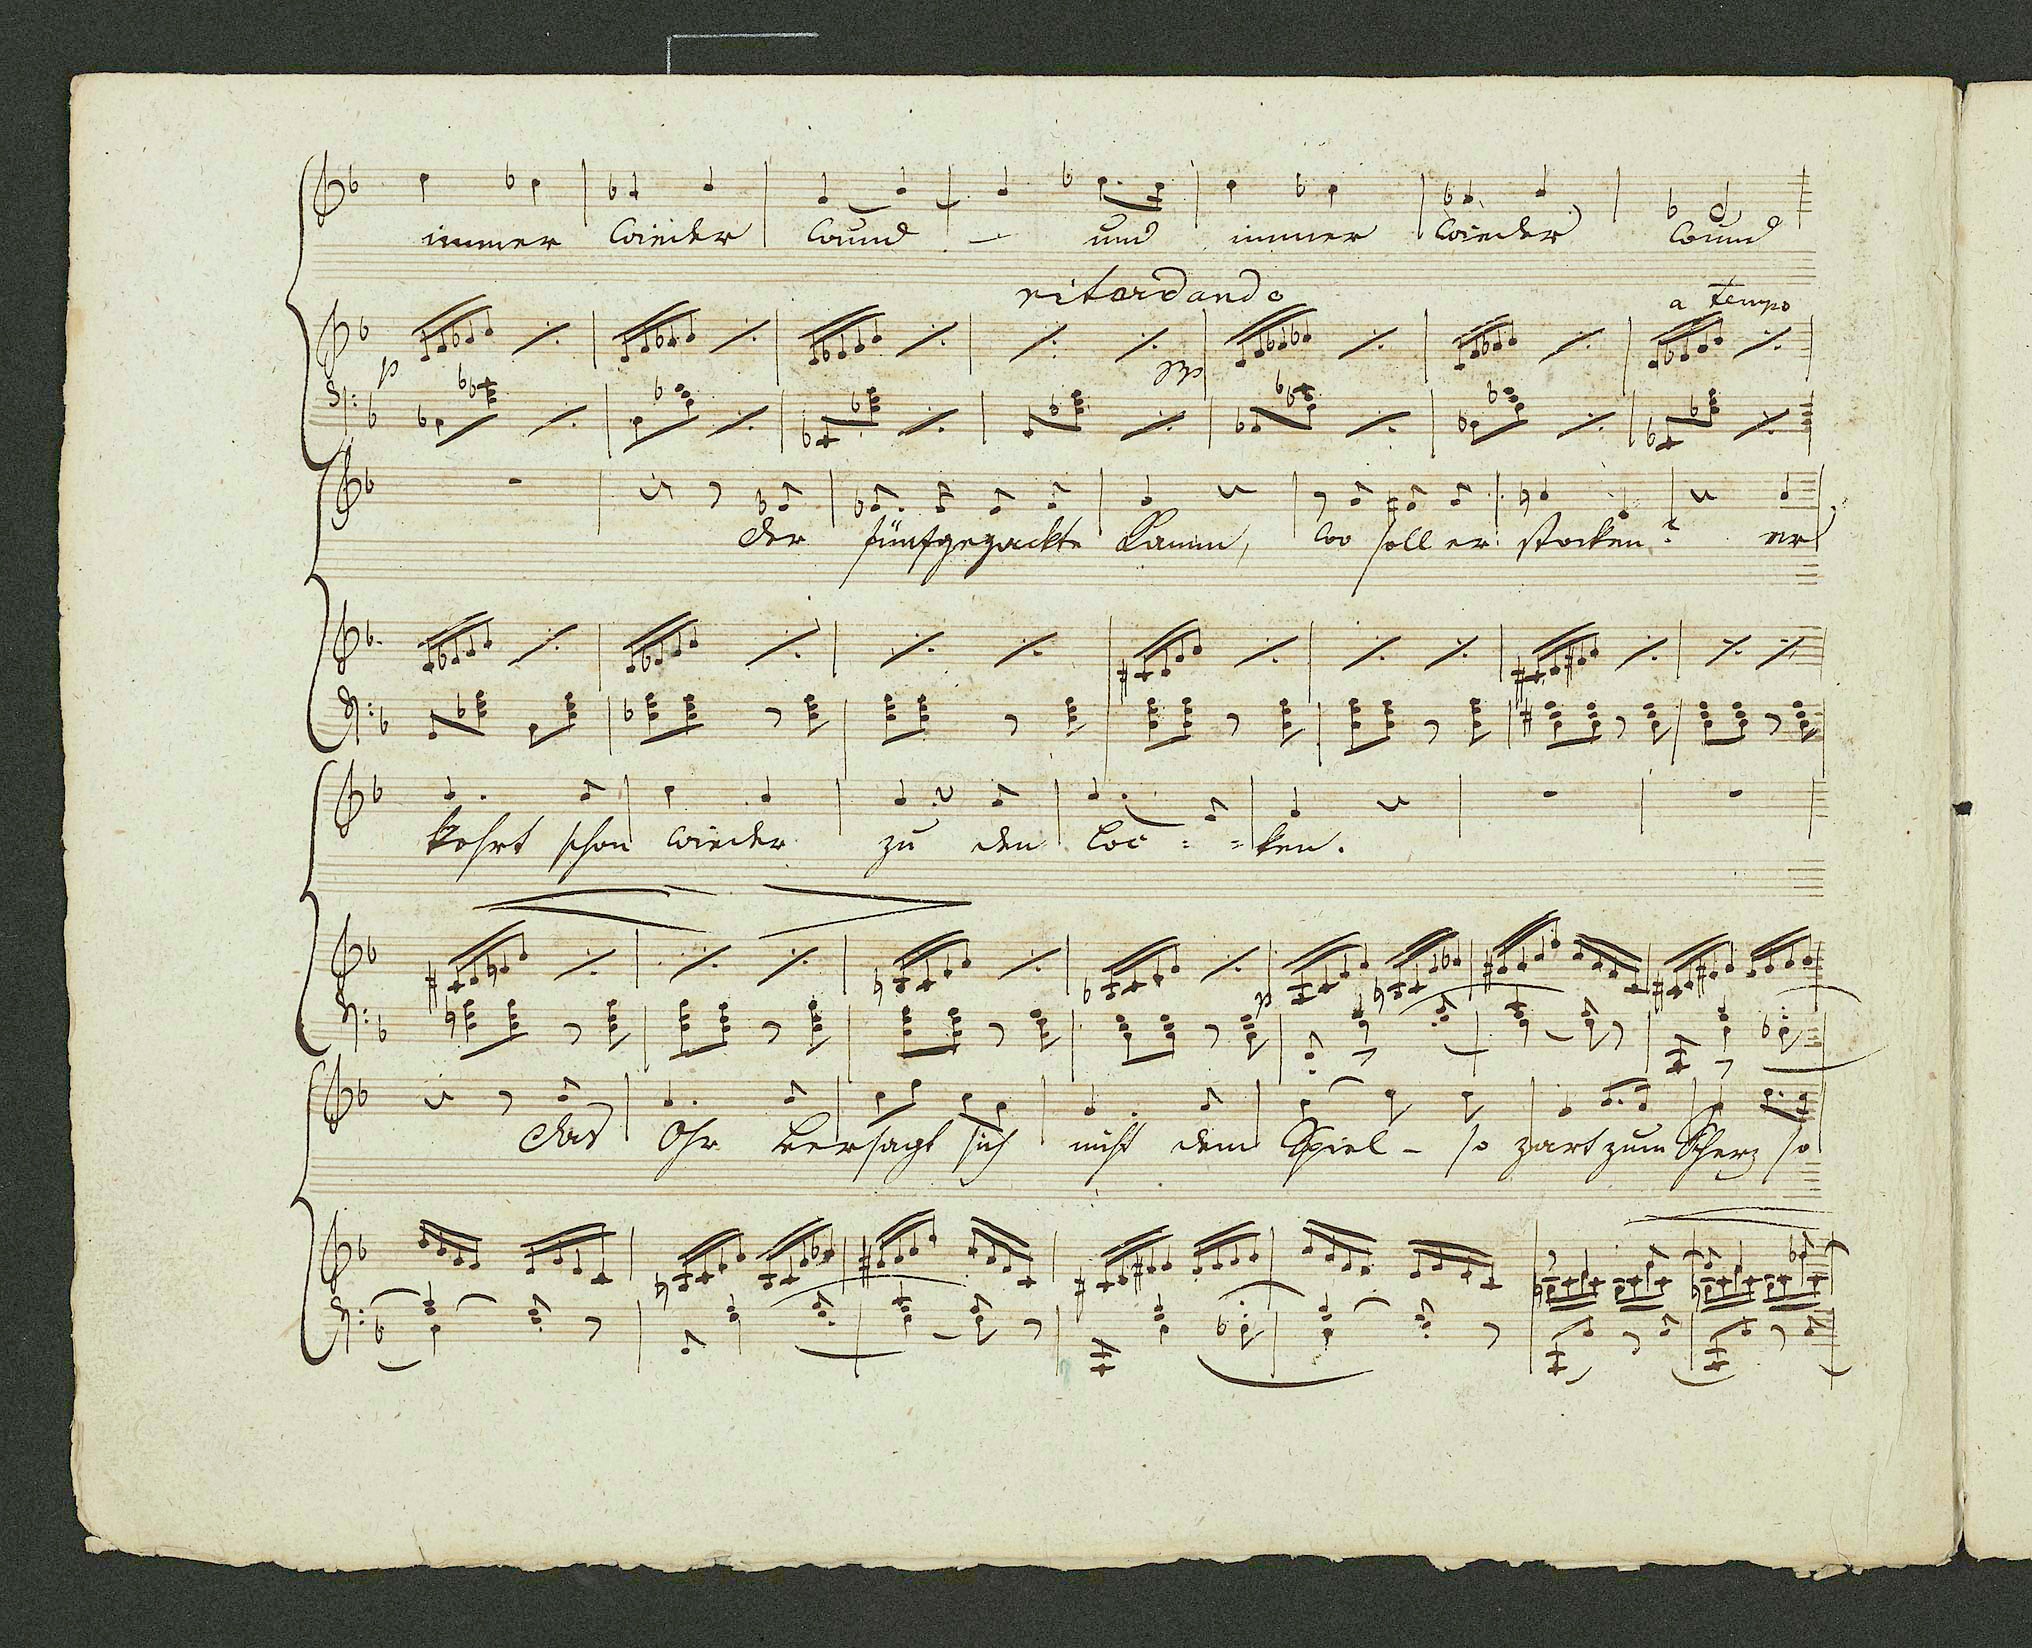 immer wieder wund – und immer wieder wund
ritardando
a tempo
p
pp
der fünfgezackte Kamm, wo soll er stocken? er
kehrt schon wieder zu den Loc = = ken.
p
das Ohr versagt sich nicht dem Spiel – so zart zum Scherz so